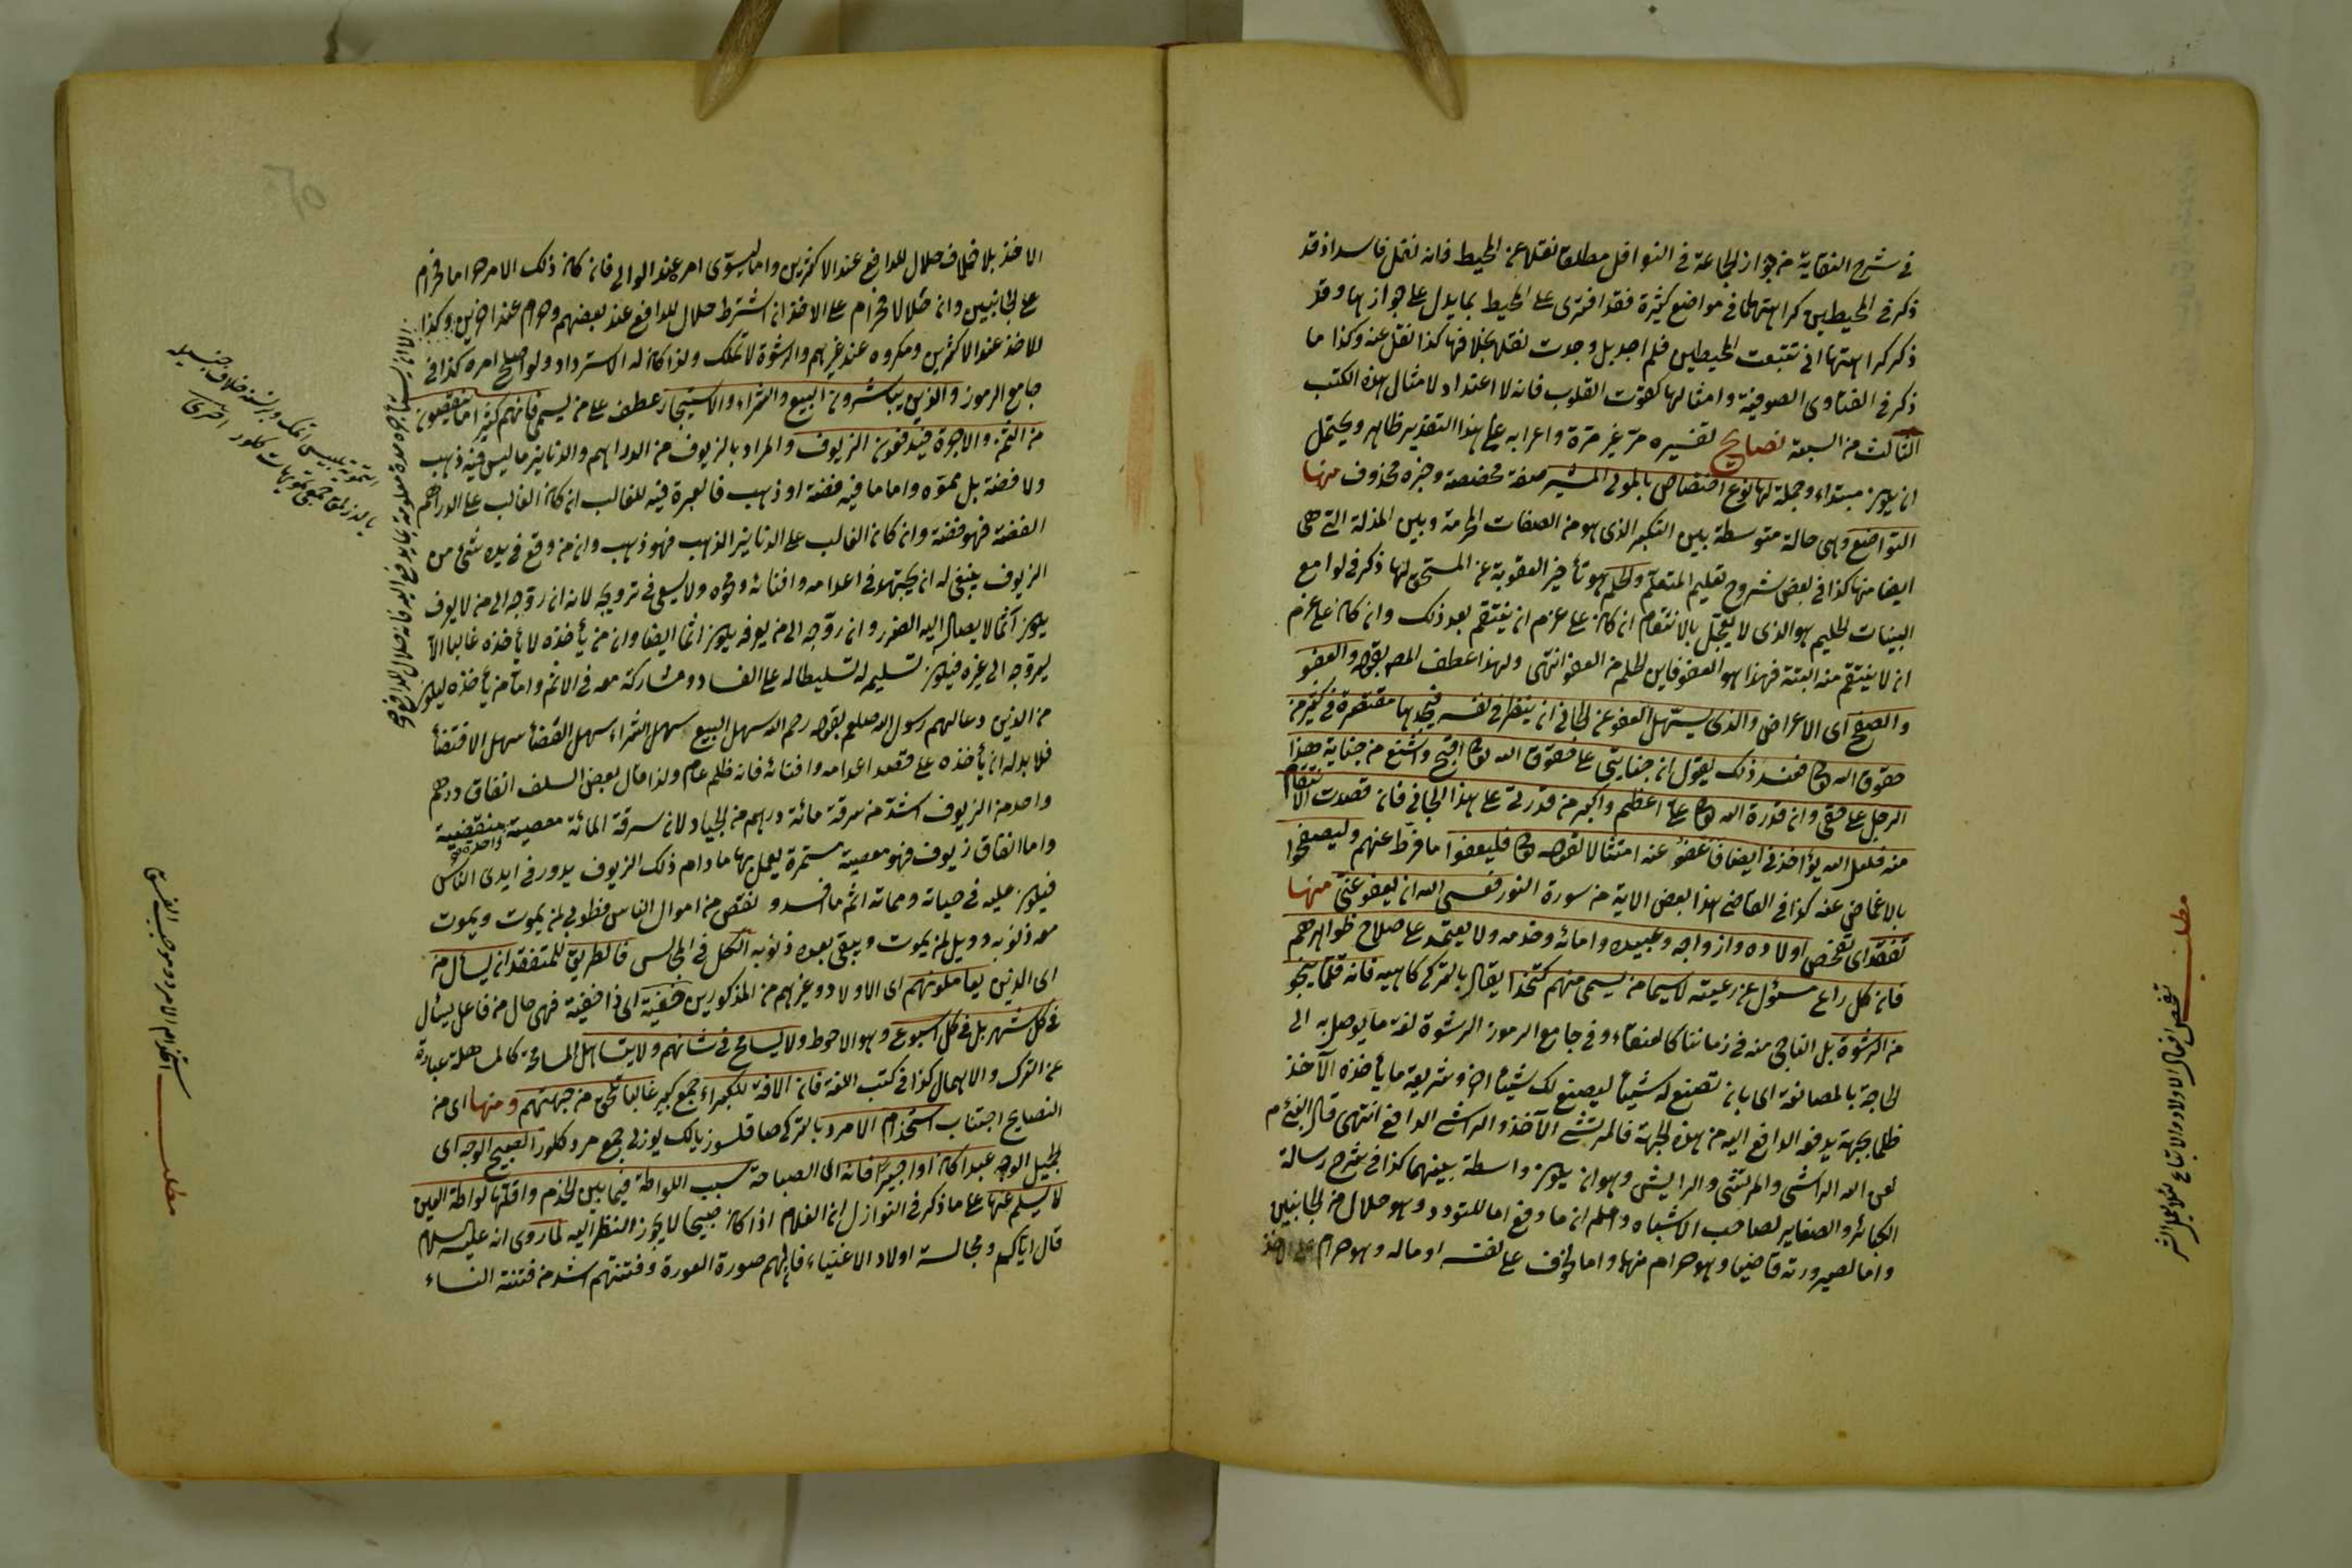 في شرح النقاية من جواز الجماعة في النوافل مطلقا نقلا عن المحيط فانه نقل فاسد اذ قد
ذكر في المحيطين كراهتها في مواضع كثيرة فقد افترى على المحيط بما يدل على جوازها وقد
ذكر كراهتها اني تتبعت المحيطين فلم اجد بل وجدت نقلها بخلافها كذا نقل عنه وكذا ما
ذكر في الفتاوى الصوفية وامثالها كقوت القلوب فانه لا اعتداد لامثال هذه الكتب
الثالث من السبعة نصايح تفسيره مر غير مرة واعرابه على هذا التقدير ظاهر ويحتمل
ان يكون مبتداء وجملة لها نوع اختصاص بالمولى المشير صفة مخصصة وخبره محذوف منها
التواضع وهي حالة متوسطة بين التكبر الذي هو من الصفات المحرمة وبين المذلة التي هي
ايضا منها كذا في بعض شروح تعليم المتعلم والحلم هو تأخير العقوبة عن المستحق لها ذكر في لوامع
البينات الحليم هو الذي لا يعجل بالانتقام ان كان على عزم ان ينتقم بعد ذلك وان كان على عزم
ان لا ينتقم منه البتة فهذا هو العفو فاين الحلم من العفو انتهى ولهذا عطف المصـ بقوله والعفو
والصفح اى الاعراض والذى يسهل العفو عن الجاني ان ينظر في نفسه فيجدها مقتصرة في كثير من
حقوق الله تعا فعند ذلك يقول ان جنايتي على حقوق الله تعا اقبح واشنع من جناية هذا
الرجل على حقي وان قدرة الله تعا على اعظم واكبر من قدرتي على هذا الجاني فان قصدت الانتقام
منه فلعل الله يؤاخذني ايضا فاعفو عنه امتثالا لقوله تعا فليعفوا ما فرط عنهم وليصفحوا
بالاغماض عنه كذا في القاضي هذا بعض الاية من سورة النور فعسى الله ان يعفو عني منها
تفقد اى تفحص اولاده وازواجه وعبيده وامائه وخدمه ولا يعتمد على صلاح ظواهرهم
فان كل راع مسئول عن رعيته لاسيما من يسمى منهم كتخدا يقال بالتركى كاهيه فانه قلما ينجو
من الرشوة بل الناجي منه في زماننا كالعنقاء وفي جامع الرموز الرشوة لغة ما يوصل به الى
الحاجة بالمصانعة اى بان تصنع له شيئا ليصنع لك شيئا اخر وشريعة ما يأخذه الآخذ
ظلما بجهة يدفعه الدافع اليه من هذه الجهة فالمرتشي الآخذ والراشي الدافع انتهى قال النبي عم
لعن الله الراشي والمرتشي والرايش وهو ان يكون واسطة بينهما كذا في شرح رسالة
الكبائر والصغاير لصاحب الاشباه واعلم ان ما دفع اما للتودد وهو حلال من الجانبين
واما لصيرورته قاضيا وهو حرام منهما واما لخوف على نفسه او ماله وهو حرام على الاخذ
مطلب
تفحص افعال الاولاد والاتباع
الاخذ بلا خلاف حلال للدافع عند الاكثرين واما ليسوى امره عند الوالي فان كان ذلك الامر حراما فحرام
على الجانبين وان حلالا فحرام على الاخذ ان اشترط حلال للدافع عند بعضهم وحرام عند اخرين وكذا
للاخذ عند الاكثرين ومكروه عند غيرهم والرشوة لا تملك ولذا كان له الاسترداد ولو اصلح امره كذا في
جامع الرموز والذين يباشرون البيع والشراء والاستيجار عطف على من يسمى فانهم كثيرا ما ينقصون
من الثمن والاجرة فيدفعون الزيوف والمراد بالزيوف من الدراهم والدنانير ما ليس فيه ذهب
ولا فضة بل مموه واما ما فيه فضة او ذهب فالعبرة فيه للغالب ان كان الغالب على الدراهم
الفضة فهو فضة وان كان الغالب على الدنانير الذهب فهو ذهب وان من وقع في يده شئ من
الزيوف ينبغي له ان يجتهد في اعدامه وافنائه ومحوه ولا يسعى في ترويجه لانه ان روجه الى من لا يعرف
يكون آثما لايصال اليه الضرر وان روجه الى من يعرفه يكون اثما ايضا وان من يأخذه لا يأخذه غالبا الا
ليروجه الى غيره فيكون تسليمه له تسليطا له على الفساد ومشاركة معه في الاثم واما من يأخذه ليكون
من الذين دعا لهم رسول الله صلعم بقوله رحم الله سهل البيع سهل الشراء سهل القضأ سهل الاقتضأ
فلا بد له ان يأخذه على قصد اعدامه وافنائه فانه ظلم عام ولذا قال بعض السلف انفاق درهم
واحد من الزيوف اشد من سرقة مائة درهم من الجياد لان سرقة المائة معصية واحدة منقضية
واما انفاق زيوف فهو معصية مستمرة يعمل بها ما دام ذلك الزيوف يدور في ايدى الناس
فيكون عليه في حياته ومماته اثم ما فسد ونقص من اموال الناس فطوبى لمن يموت ويموت
معه ذنوبه وويل لمن يموت ويبقى بعده ذنوبه الكل في المجالس فالطريق للمتفقد ان يسأل من
اى الذين يعاملونهم اى الاولاد وغيرهم من المذكورين خفية اى ذا خفية فهي حال من فاعل يسئال
في كل شهر بل في كل اسبوع وهو الاحوط ولا يسامح في شانهم ولا يتساهل المسامحة كالمساهلة عبارة
عن الترك والاهمال كذا في كتب اللغة فان الافة للكبراء جمع كبير غالبا تلحق من جهتهم ومنها اى من
النصايح اجتناب استخدام الامرد بالتركى صاقلسوز يالك يوزلى جمع مرد ككلور الصبيح الوجه اى
الجميل الوجه عبدا كان او اجيرا فانه اى الصباحة سبب اللواطة فيما بين الخدم واقلها لواطة العين
لا يسلم عنها على ما ذكر في النوازل ان الغلام اذا كان صبيحا لا يجوز النظر اليه لما روى انه عليه السلام
قال اياكم ومجالسة اولاد الاغنياء فان لهم صورة العورة وفتنتهم اشد من فتنة النساء
مطلب
استخدام الامرد